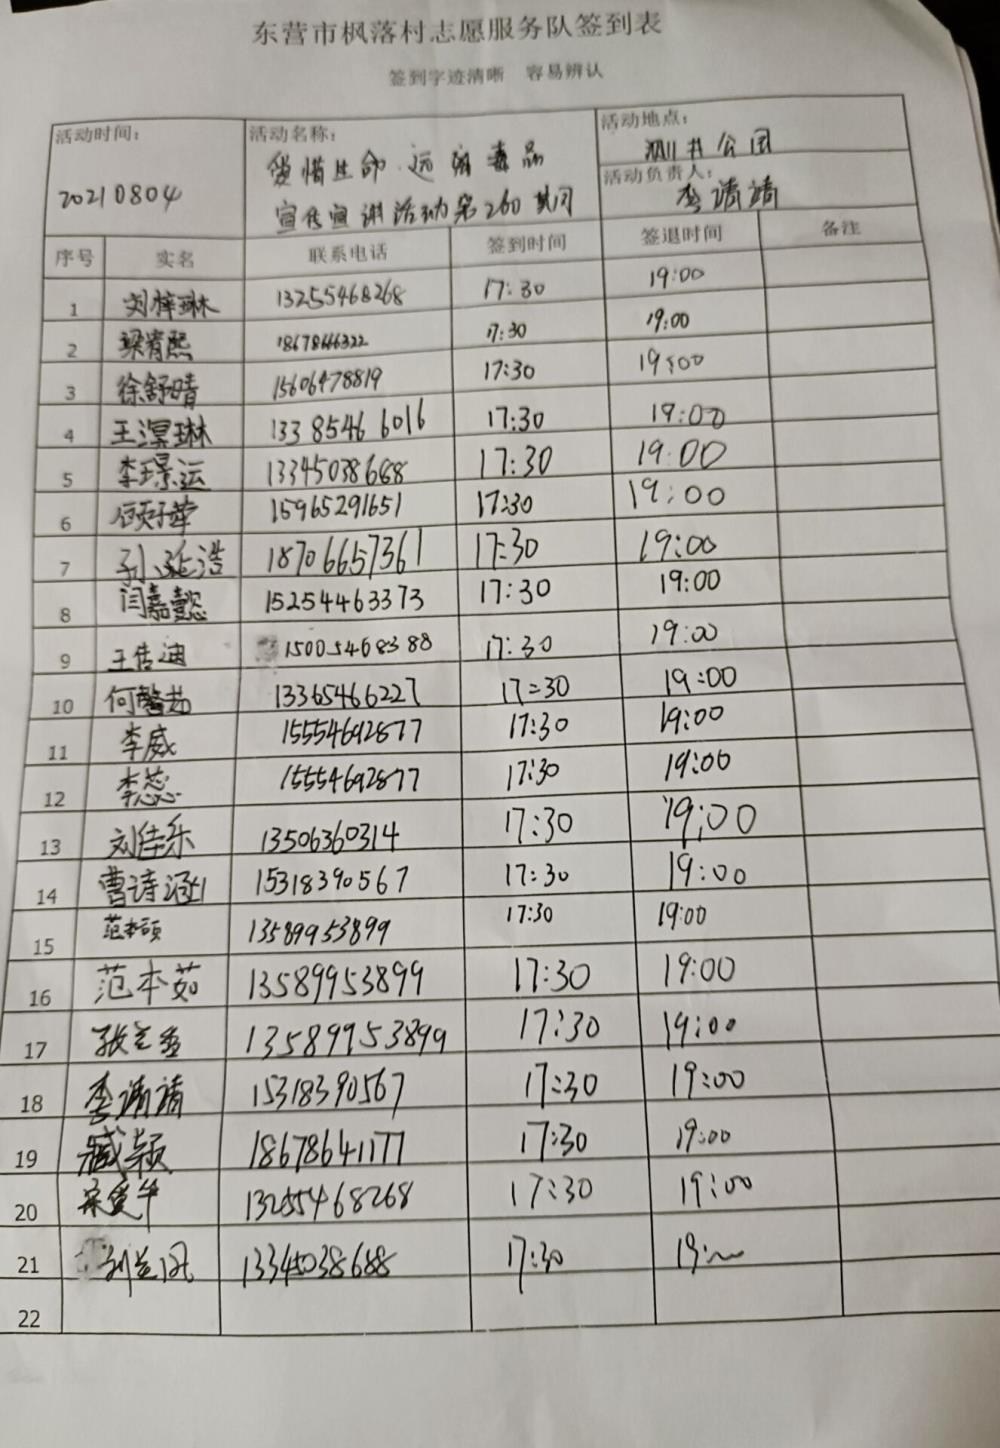 东营市枫落村志愿服务队签到表
签到字迹清晰 容易辨认
活动时间: 20210804
活动名称: 爱惜生命·远离毒品
宣传宣讲活动第260期
活动地点: 公园
活动负责人: 李靖靖
序号 实名 联系电话 签到时间 签退时间 备注
1 刘梓琳 13255468268 17:30 19:00
2 梁育熙 17:30 19:00
3 徐舒晴 15606478819 17:30 19:00
4 王淏琳 13385466016 17:30 19:00
5 李璟运 13345038688 17:30 19:00
6 15965291651 17:30 19:00
7 孙延浩 18706657361 17:30 19:00
8 闫嘉懿 15254463373 17:30 19:00
9 王传迪 15005468388 17:30 19:00
10 何馨茹 13365466227 17:30 19:00
11 李威 15554692877 17:30 19:00
12 李蕊 15554692877 17:30 19:00
13 刘佳乐 13506360314 17:30 19:00
14 曹诗涵 15318390567 17:30 19:00
15 范本硕 13589953899 17:30 19:00
16 范本茹 13589953899 17:30 19:00
17 张 13589953899 17:30 19:00
18 李靖靖 15318390567 17:30 19:00
19 臧颖 18678641177 17:30 19:00
20 宋爱华 13255468268 17:30 19:00
21 刘兰凤 13345038688 17:30 19:
22